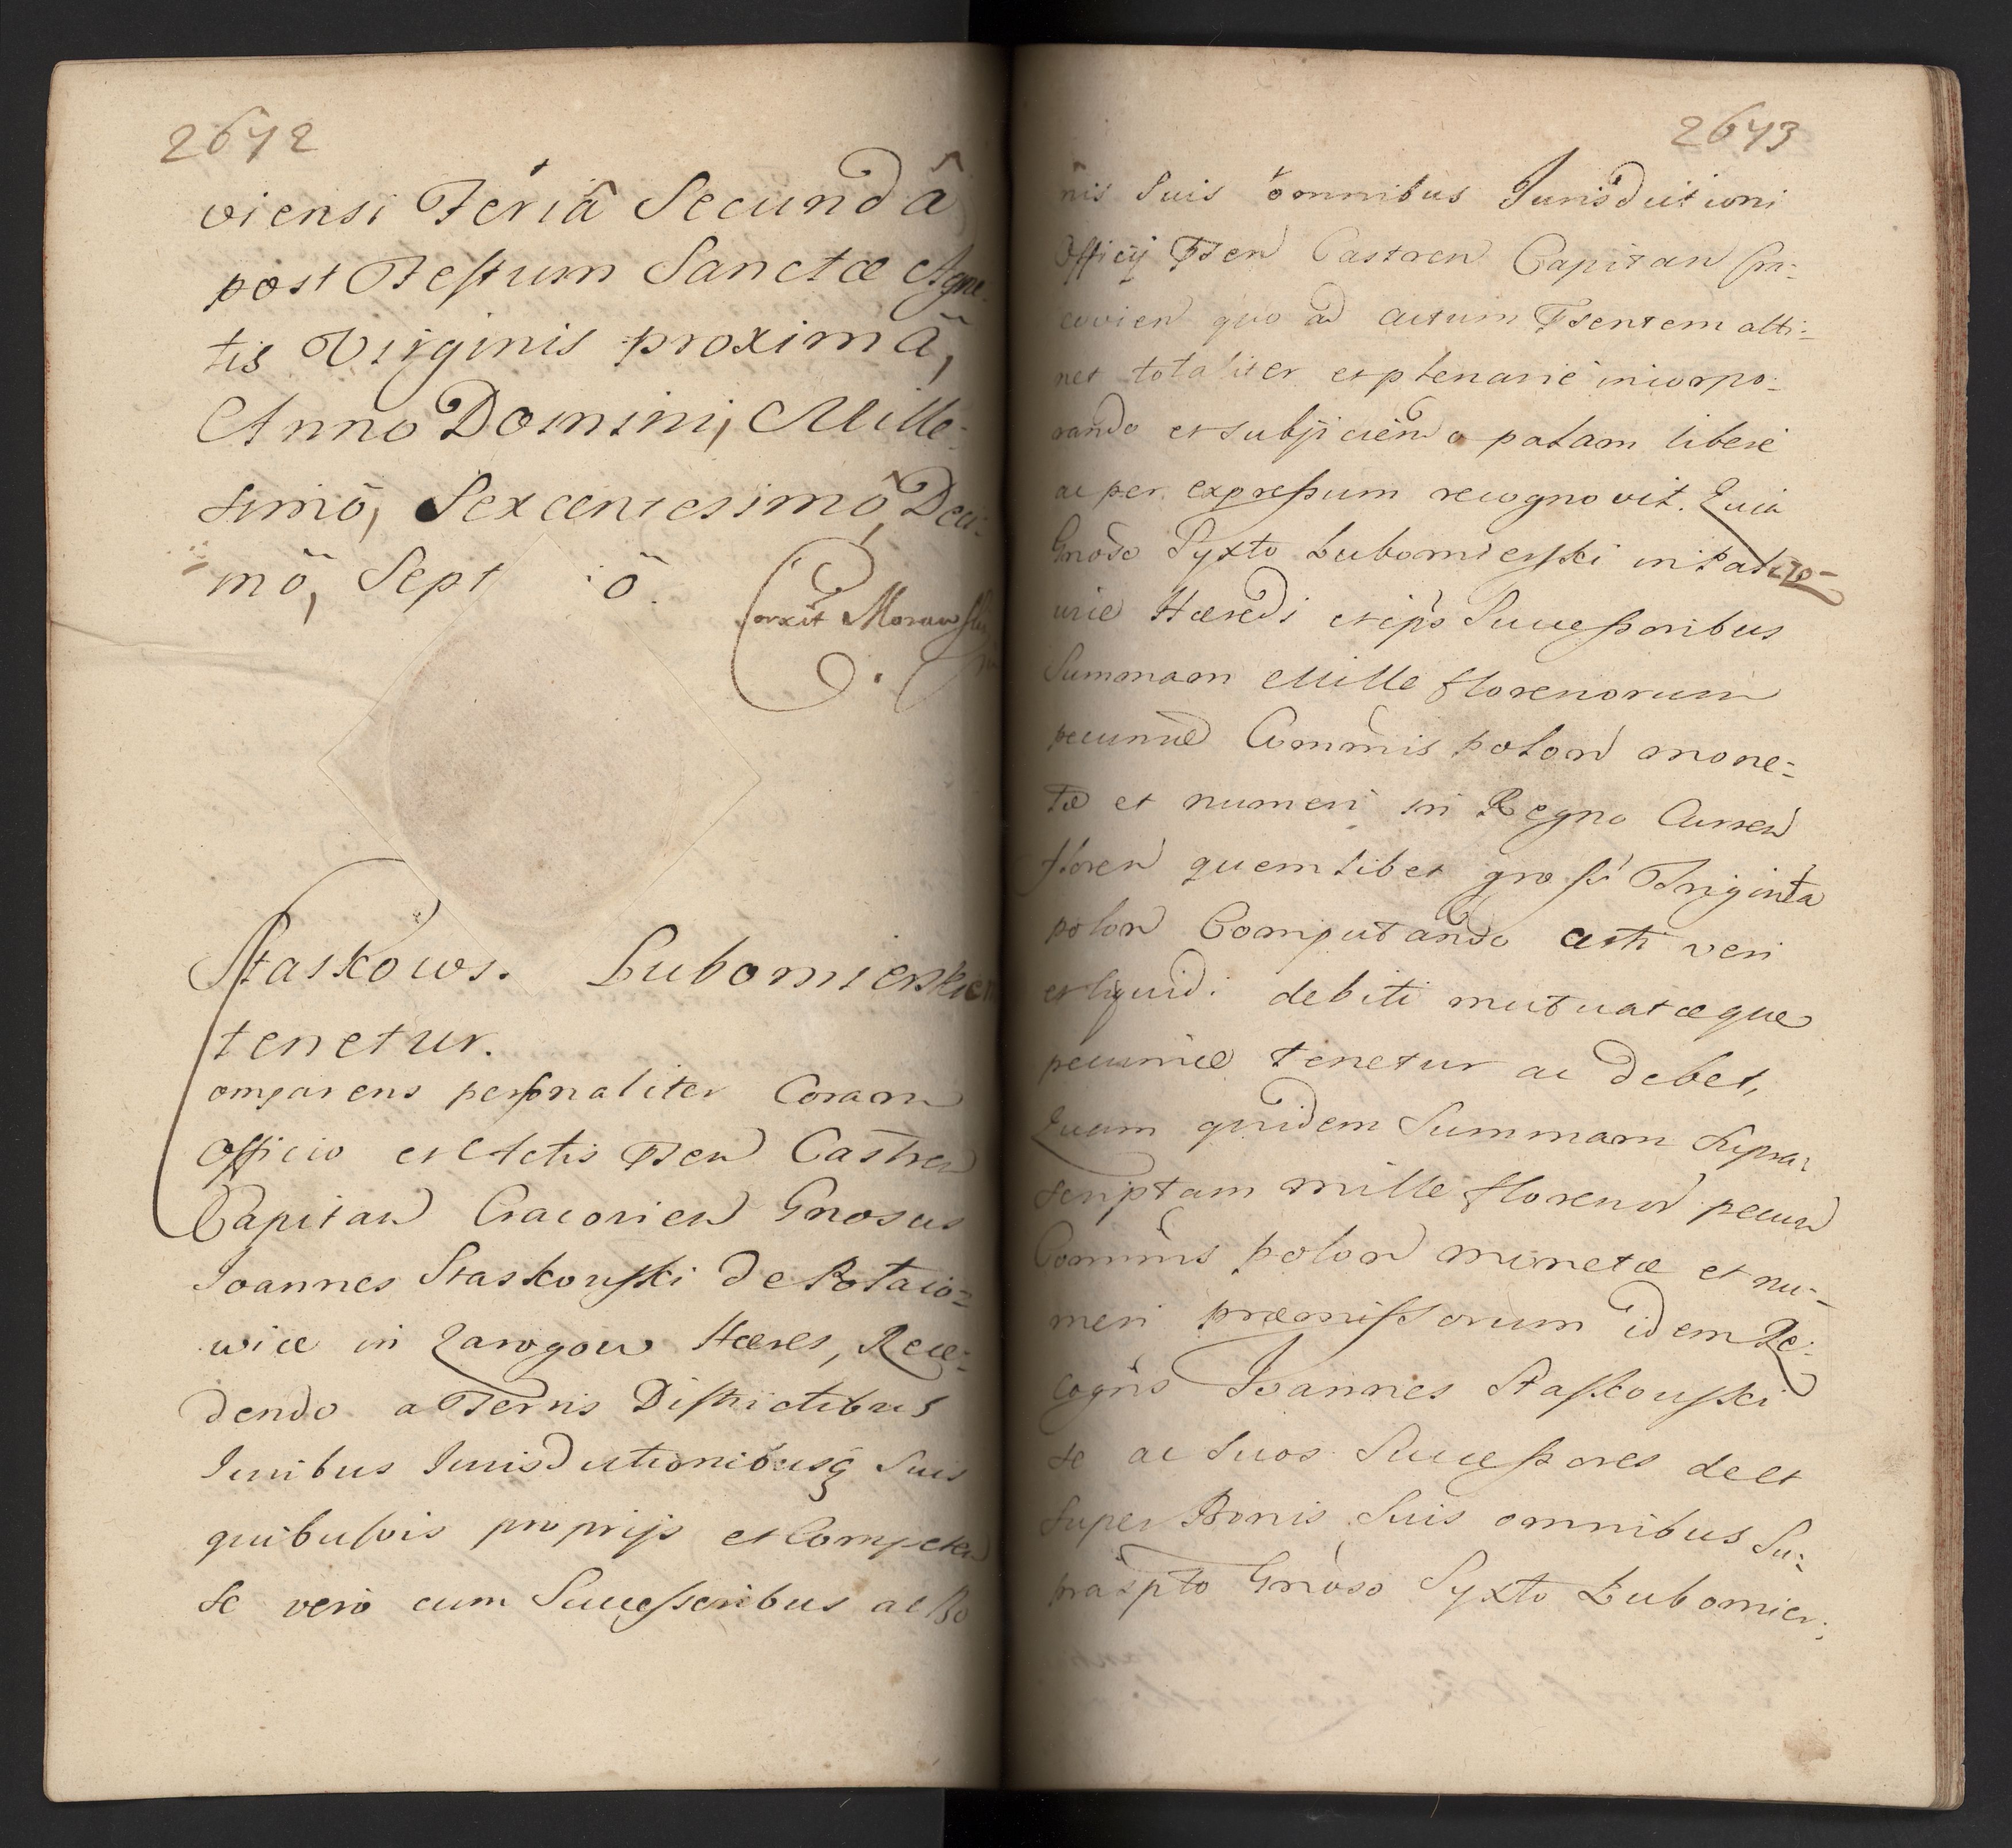 2672
viensi Feriâ Secundâ
post Festum Sanctæ Agne-
tis Virginis proximâ,
Anno Domini, Mille-
simô, Sexcentesimô, Deci-
mô, Sept ô.
Staskows. Lubomierskie
tenetur.
omparens personaliter Coram
Officio et Actis Psen Castren
Capitan Cracovien Gnosus
Joannes Staskowski de
wice in Hæres, Rece-
dendo a Terris Districtibus
Juribus Jurisdictionibusq Suis
quibusvis proprijs et Competen
se vero cum Successoribus ac Bo
2673
nis Suis omnibus Jurisdictioni
Officij Psen Castren Capitan Cra-
covien quo ad actum Psentem atti-
net totaliter et plenarie incorpo-
rando et subjiciendo palam libere
ac per expressum recognovit. Quia
Gnoso Syxto Lubomierski in
Hæredi et ips Successoribus
Summam Mille florenorum
pecuniæ Commnis polon mone-
tæ et numeri in Regno Curren
floren quemlibet gross Triginta
polon Computando certi veri
et liquidi debiti mutuatæque
pecuniæ tenetur ac debet,
Quam quidem Summam Supra-
scriptam mille florenor pecun
Commnis polon monetæ et nu-
meri præmissorum idem Re-
cogns Joannes Staskowski
se ac Suos Successores de et
super Bonis Suis omnibus Su-
praspto Gnoso Syxto Lubomier-